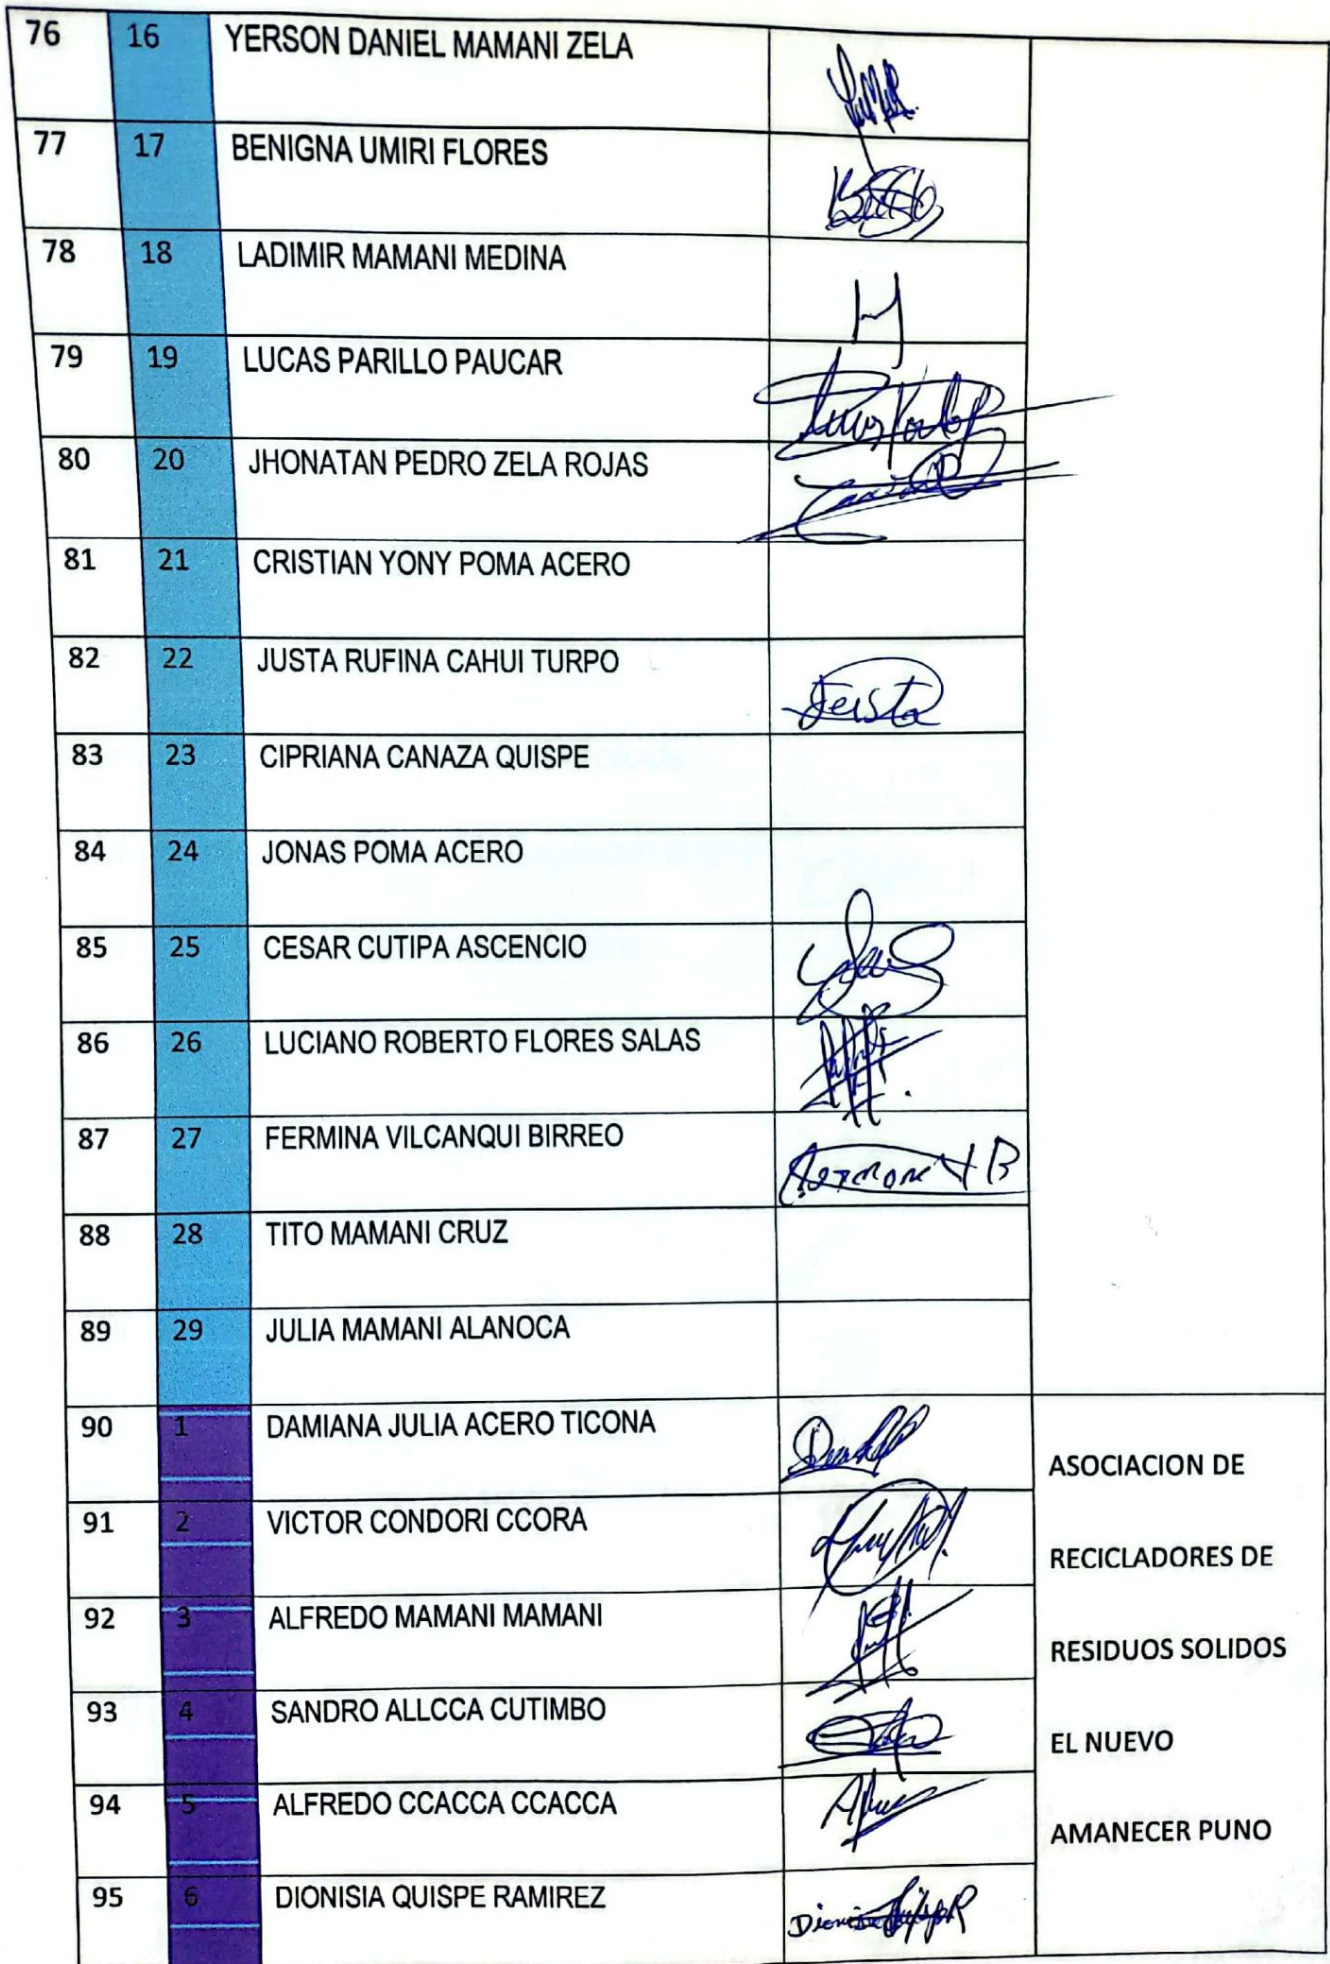 76 16 YERSON DANIEL MAMANI ZELA
77 17 BENIGNA UMIRI FLORES
78 18 LADIMIR MAMANI MEDINA
79 19 LUCAS PARILLO PAUCAR
80 20 JHONATAN PEDRO ZELA ROJAS
81 21 CRISTIAN YONY POMA ACERO
82 22 JUSTA RUFINA CAHUI TURPO
83 23 CIPRIANA CANAZA QUISPE
84 24 JONAS POMA ACERO
85 25 CESAR CUTIPA ASCENCIO
86 26 LUCIANO ROBERTO FLORES SALAS
87 27 FERMINA VILCANQUI BIRREO
88 28 TITO MAMANI CRUZ
89 29 JULIA MAMANI ALANOCA
90 1 DAMIANA JULIA ACERO TICONA
ASOCIACION DE
91 2 VICTOR CONDORI CCORA
RECICLADORES DE
92 3 ALFREDO MAMANI MAMANI
RESIDUOS SOLIDOS
93 4 SANDRO ALLCCA CUTIMBO
EL NUEVO
94 5 ALFREDO CCACCA CCACCA
AMANECER PUNO
95 6 DIONISIA QUISPE RAMIREZ